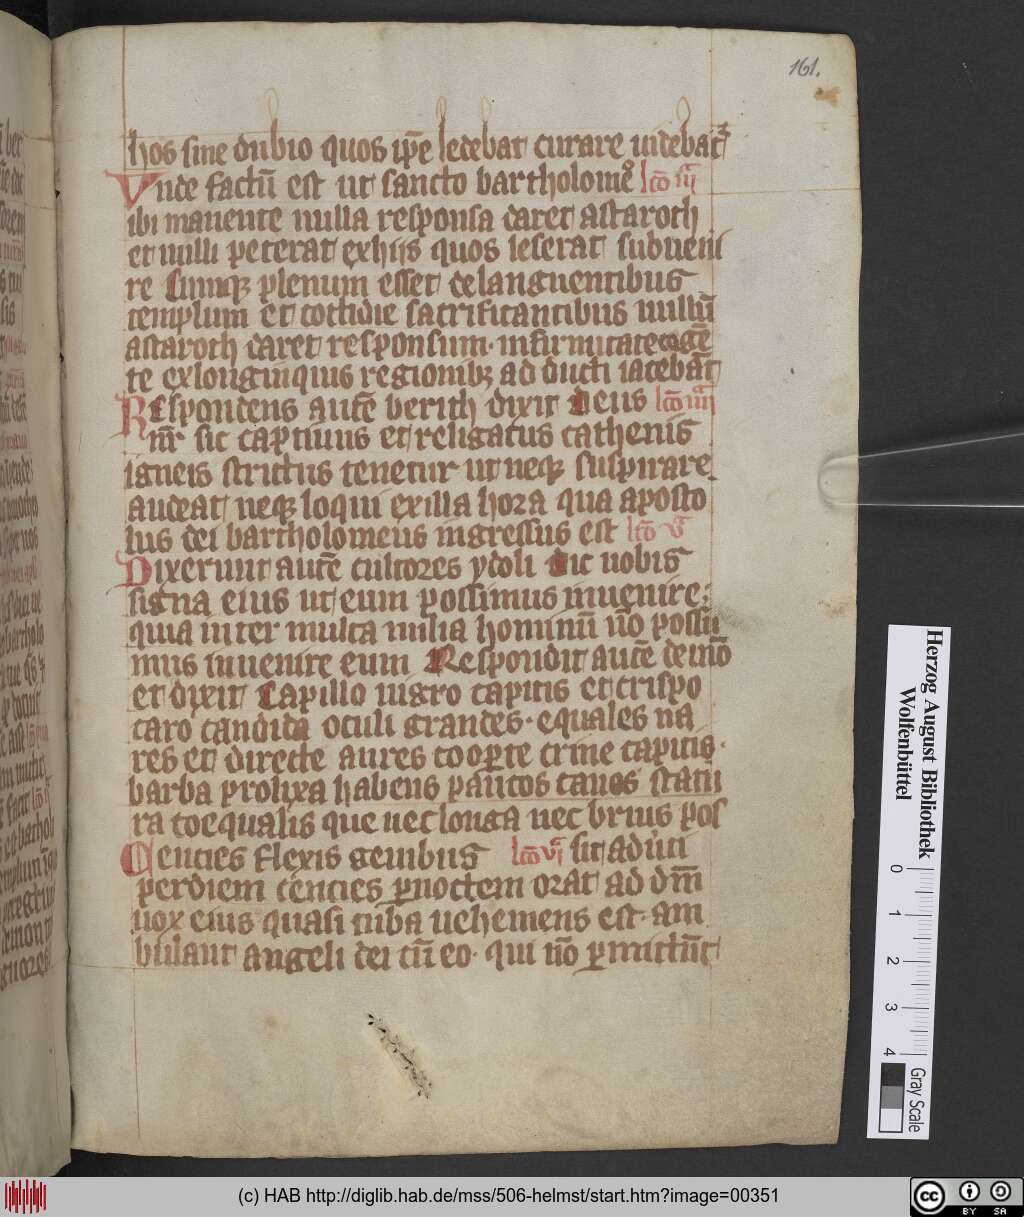 161.
hos sine dubio quos ip̄e ledebat curare uidebat᷑
Vnde factū est ut sancto bartholomeꝰ lcō iij
ibi manente nulla responsa daret astaroth
et nulli poterat exhijs quos leserat subueni
re Cumqꝫ plenum esset delanguentibus
templum et cottidie sacrificantibus nullū
astaroth daret responsum· infirmitate
te exlonginquius regionibꝫ ad ducti iacebāt
Respondens autē berith dixit Deus lcō iiij
nr̄ sic captiuus et religatus cathenis
igneis strictus tenetur ut neqꝫ suspirare
audeat neqꝫ loqui exilla hora qua aposto
lus dei bartholomeus ingressus est lcō v
Dixerunt autē cultores ydoli Dic nobis
signa eius ut eum possimus inuenire:
quia inter multa milia hominū nō possu
mus inuenire eum Respondit autē demō
et dixit Capillo nigro capitis et crispo
caro candida oculi grandes· equales na
res et directe aures coopte crine capitis·
barba prolixa habens paucos canos statu
ra coequalis que nec longa nec brius pos
Centies flexis genibus lcō vi sit aduti
perdiem centies ꝑnoctem orat ad dm̄
uox eius quasi tuba uehemens est· am
bulant angeli dei cū eo· qui nō ꝑmittūt
Herzog August Bibliothek
Wolfenbüttel
0 1 2 3 4
Gray Scale
(c) HAB http://diglib.hab.de/mss/506-helmst/start.htm?image=00351
cc BY SA